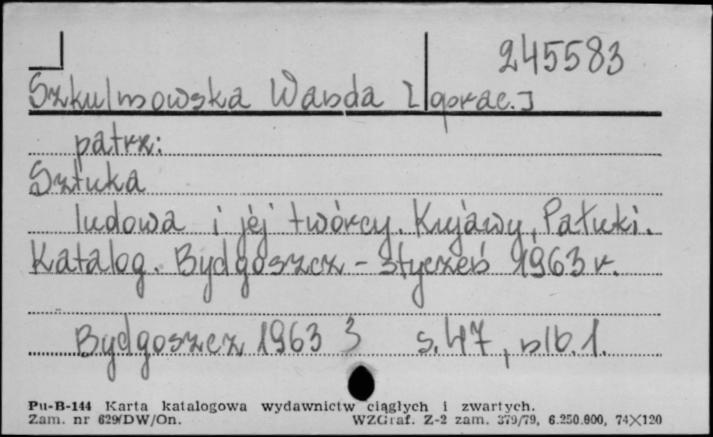 245583
Szkulmowska Wanda [oprac.]
patrz:
Sztuka
ludowa i jej twórcy. Kujawy, Pałuki.
Katalog. Bydgoszcz - styczeń 1963 r.
Bydgoszcz 1963 s. 47, nlb. 1.
Pu-B-144 Karta katalogowa wydawnictw ciągłych i zwartych.
Zam. nr 629/DW/On. WZGraf. Z-2 zam. 379/79, 6.250.000, 74×120